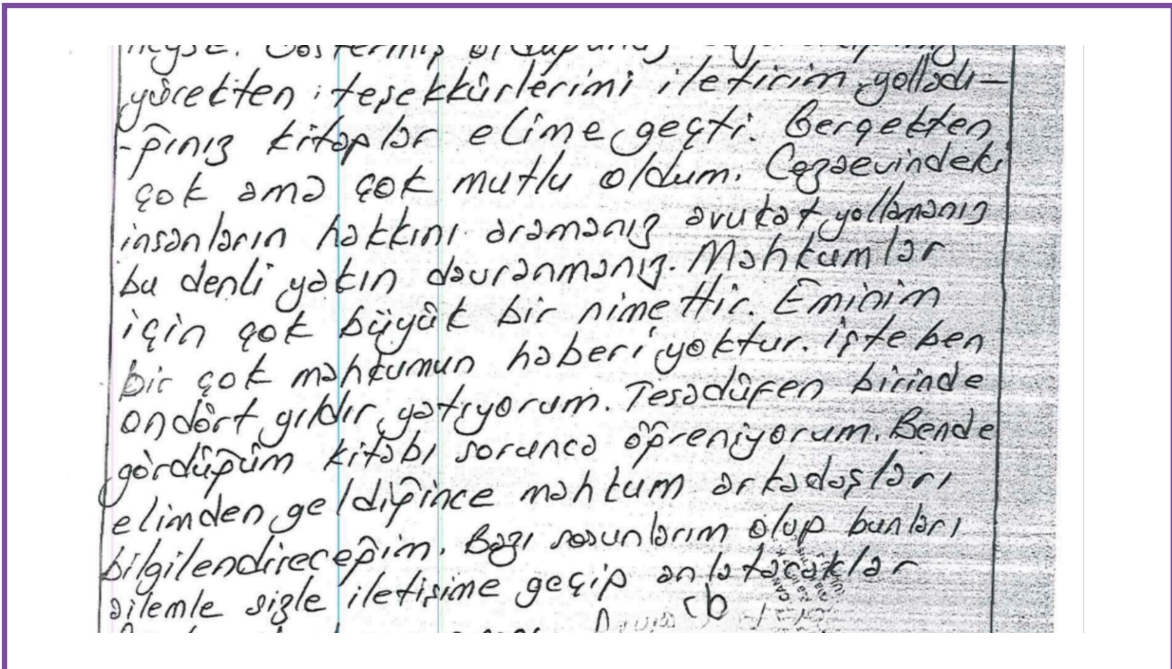 yürekten teşekkürlerimi iletirim yolladı-
-ğınız kitaplar elime geçti. Gerçekten
çok ama çok mutlu oldum. Cezaevindeki
insanların hakkını aramanız avukat yollamanız
bu denli yakın davranmanız. Mahkumlar
için çok büyük bir nimettir. Eminim
bir çok mahkumun haberi yoktur. işte ben
ondört yıldır yatıyorum. Tesadüfen birinde
gördüğüm kitabı sorunca öğreniyorum. Bende
elimden geldiğince mahkum arkadaşları
bilgilendireceğim. Bazı sorunlarım olup bunları
ailemle sizle iletişime geçip anlatacaklar